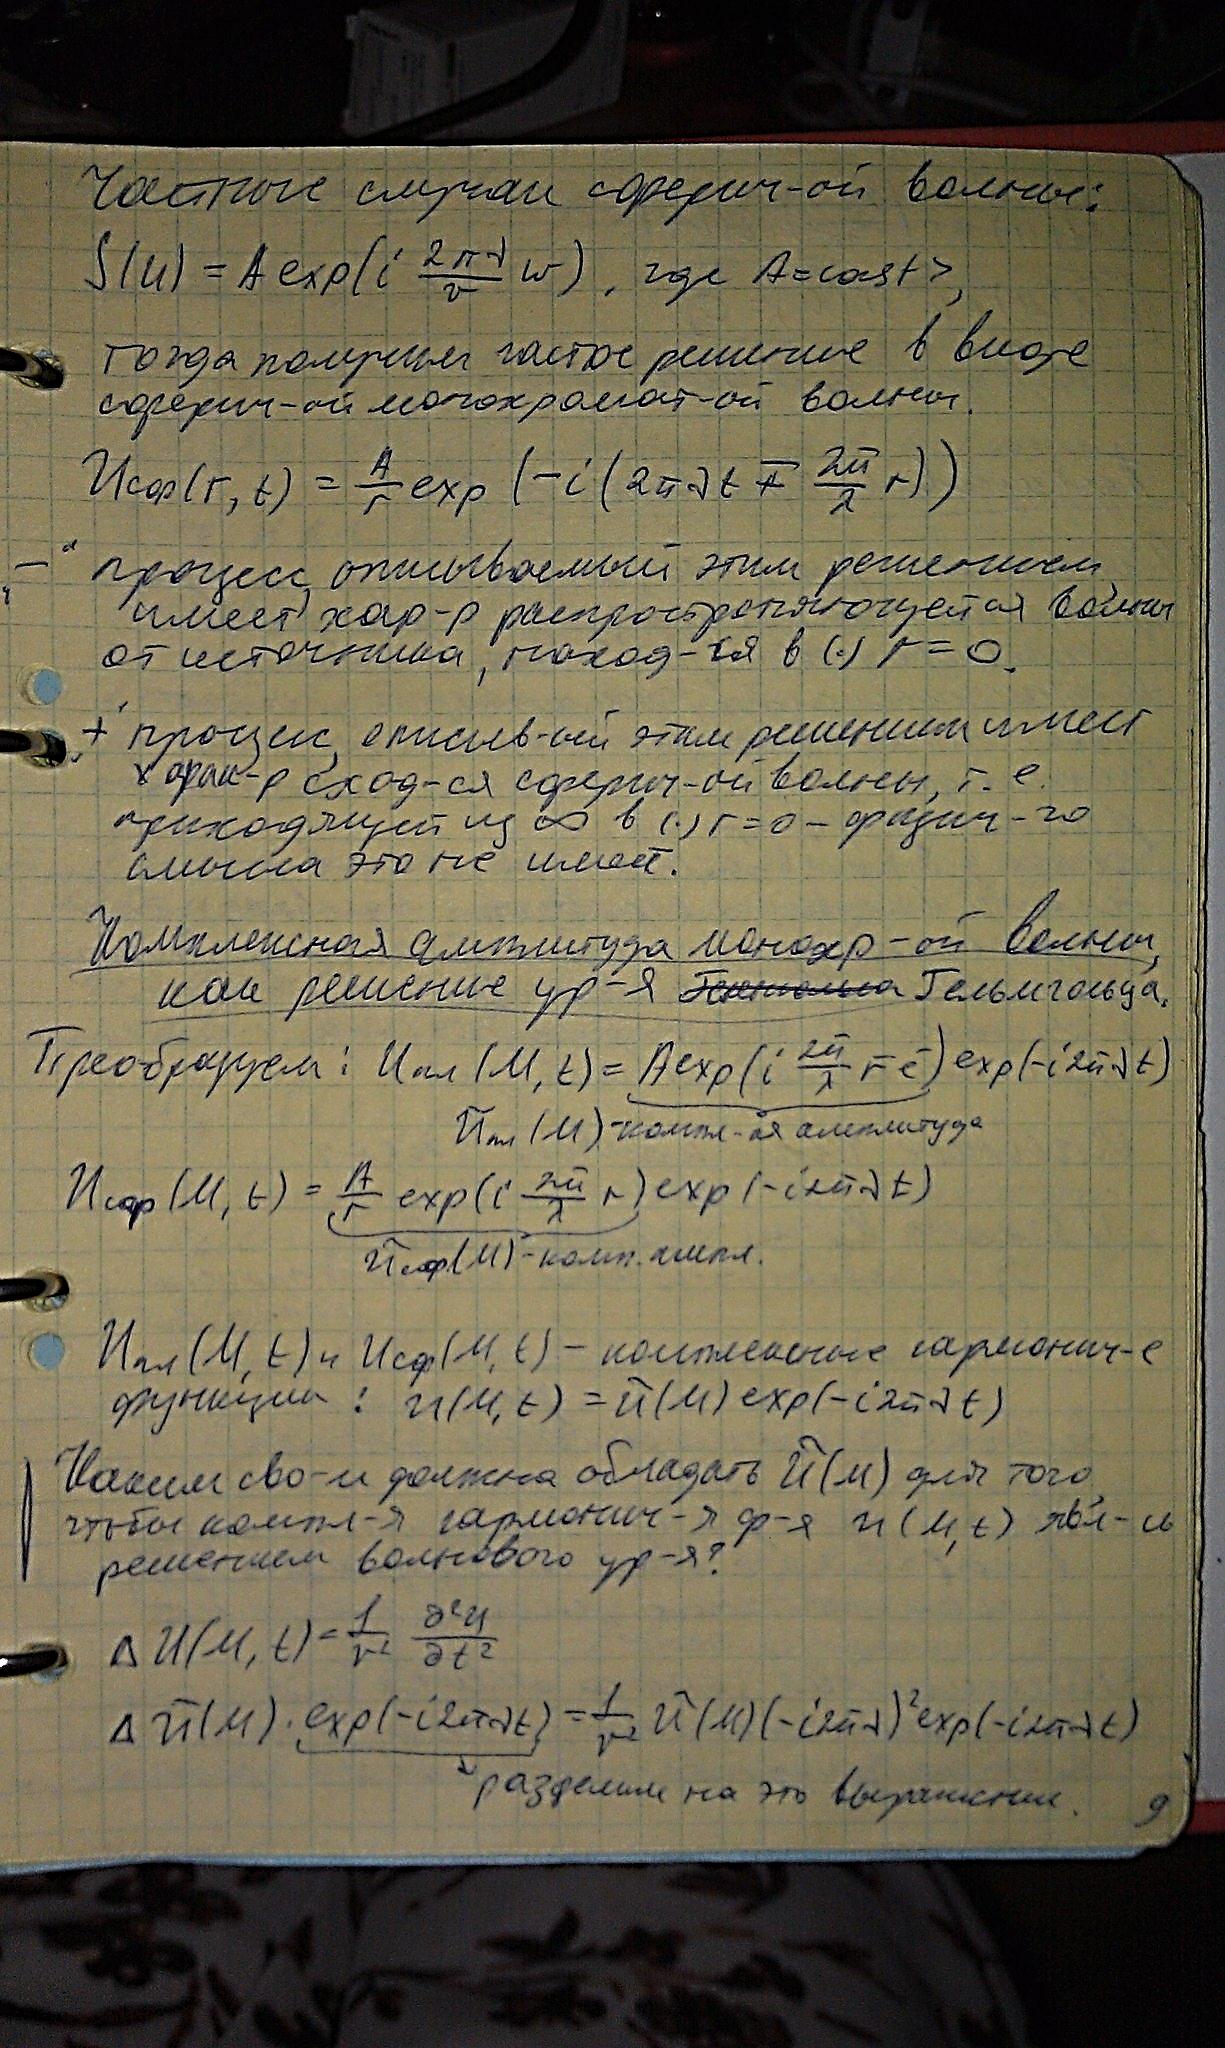 Частные случаи сферич-ой волны:
f(w) = A exp(i 2πν/v w), где A=const>,
тогда получим частое решение в виде
сферич-ой монохромат-ой волны.
Uсф(r, t) = A/r exp(-i(2πνt ∓ 2π/λ r))
"–" процесс, описываемый этим решением,
имеет хар-р распространяющейся волны
от источника, наход-ся в (·) r=0.
"+" процесс, описыв-ый этим решением имеет
харак-р сход-ся сферич-ой волны, т.е.
приходящей из ∞ в (·) r=0 – физич-го
смысла это не имеет.
Комплексная амплитуда монохр-ой волны,
как решение ур-я Гельмгольца.
Преобразуем: Uпл(M, t) = A exp(i 2π/λ r̄ ē) exp(-i2πνt)
Ũпл(M) - компл-ая амплитуда
Uсф(M, t) = A/r exp(i 2π/λ r) exp(-i2πνt)
Ũсф(M) - комп. ампл.
Uпл(M, t) и Uсф(M, t) – комплексные гармонич-е
функции: u(M, t) = Ũ(M) exp(-i2πνt)
Каким сво-м должна обладать Ũ(M) для того,
чтобы компл-я гармонич-я ф-я u(M, t) явл-сь
решением волнового ур-я?
Δ U(M, t) = 1/v² ∂²U/∂t²
Δ Ũ(M) · exp(-i2πνt) = 1/v² Ũ(M) (-i2πν)² exp(-i2πνt)
разделим на это выражение.
9